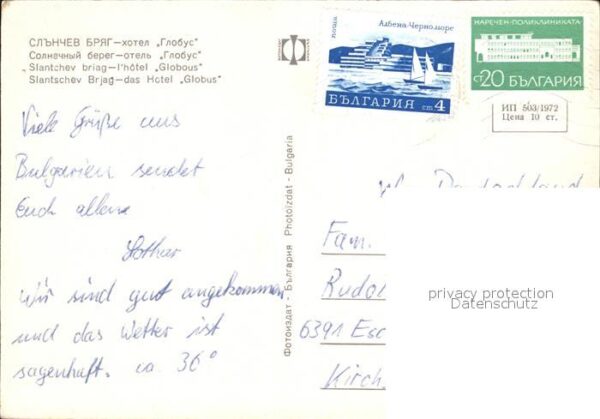 СЛЪНЧЕВ БРЯГ—хотел „Глобус"
Солнечный берег—отель „Глобус"
Slantchev briag—l'hôtel „Globous"
Slantschev Brjag—das Hotel „Globus"
поща
Албена-Черноморе
БЪЛГАРИЯ ст 4
НАРЕЧЕН-ПОЛИКЛИНИКАТА
ст 20 БЪЛГАРИЯ
ИП 503/1972
Цена 10 ст.
Viele Grüße aus
Bulgarien sendet
Euch allen
Lothar
Wir sind gut angekommen
und das Wetter ist
sagenhaft. ca. 36°
Фотоиздат - България Photoizdat - Bulgaria
Deutschland
Fam.
Rudo
6391 Esc
Kirch
privacy protection
Datenschutz